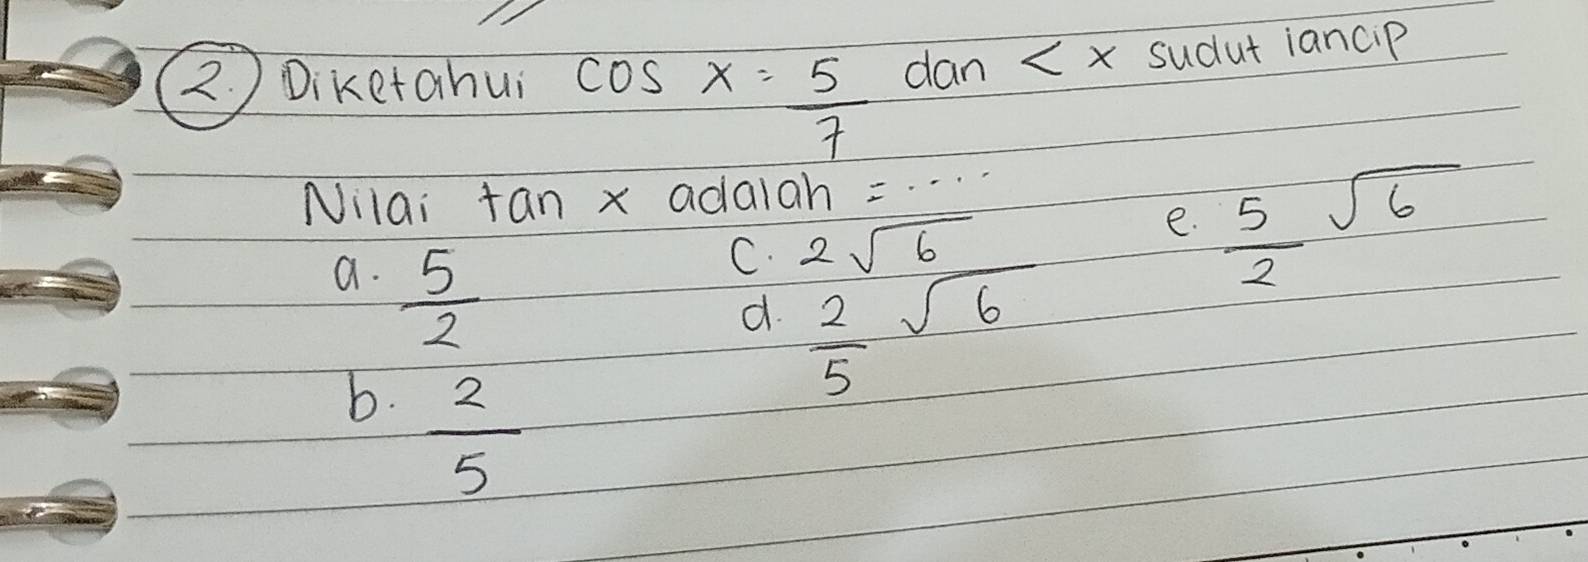 2. Diketahui cos x = 5/7 dan < x sudut lancip
Nilai tan x adalah = ....
a. 5/2
b. 2/5
c. 2√6
d. 2/5 √6
e. 5/2 √6